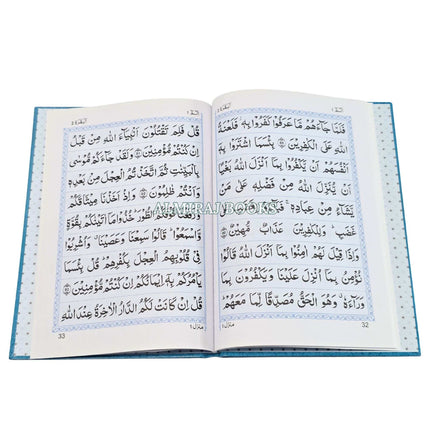 البقرة ٢
الٓمّٓ ١
فَلَمَّا جَآءَهُمْ مَّا عَرَفُوْا كَفَرُوْا بِهٖ فَلَعْنَةُ
اللّٰهِ عَلَى الْكٰفِرِيْنَ ﴿٨٩﴾ بِئْسَمَا اشْتَرَوْا بِهٖٓ
اَنْفُسَهُمْ اَنْ يَّكْفُرُوْا بِمَآ اَنْزَلَ اللّٰهُ بَغْيًا
اَنْ يُّنَزِّلَ اللّٰهُ مِنْ فَضْلِهٖ عَلٰى مَنْ
يَّشَآءُ مِنْ عِبَادِهٖ ۚ فَبَآءُوْ بِغَضَبٍ عَلٰى
غَضَبٍ ؕ وَلِلْكٰفِرِيْنَ عَذَابٌ مُّهِيْنٌ ﴿٩٠﴾
وَاِذَا قِيْلَ لَهُمْ اٰمِنُوْا بِمَآ اَنْزَلَ اللّٰهُ قَالُوْا
نُؤْمِنُ بِمَآ اُنْزِلَ عَلَيْنَا وَيَكْفُرُوْنَ بِمَا
وَرَآءَهٗ ۗ وَهُوَ الْحَقُّ مُصَدِّقًا لِّمَا مَعَهُمْ ؕ
منزل ١
32
البقرة ٢
الٓمّٓ ١
قُلْ فَلِمَ تَقْتُلُوْنَ اَنْۢبِيَآءَ اللّٰهِ مِنْ قَبْلُ
اِنْ كُنْتُمْ مُّؤْمِنِيْنَ ﴿٩١﴾ وَلَقَدْ جَآءَكُمْ مُّوْسٰى
بِالْبَيِّنٰتِ ثُمَّ اتَّخَذْتُمُ الْعِجْلَ مِنْۢ بَعْدِهٖ
وَاَنْتُمْ ظٰلِمُوْنَ ﴿٩٢﴾ وَاِذْ اَخَذْنَا مِيْثَاقَكُمْ
وَرَفَعْنَا فَوْقَكُمُ الطُّوْرَ ؕ خُذُوْا مَآ اٰتَيْنٰكُمْ بِقُوَّةٍ
وَّاسْمَعُوْا ؕ قَالُوْا سَمِعْنَا وَعَصَيْنَا ۗ وَاُشْرِبُوْا
فِيْ قُلُوْبِهِمُ الْعِجْلَ بِكُفْرِهِمْ ؕ قُلْ بِئْسَمَا
يَاْمُرُكُمْ بِهٖٓ اِيْمَانُكُمْ اِنْ كُنْتُمْ مُّؤْمِنِيْنَ ﴿٩٣﴾
قُلْ اِنْ كَانَتْ لَكُمُ الدَّارُ الْاٰخِرَةُ عِنْدَ اللّٰهِ
منزل ١
33
ALMIRAJ BOOKS